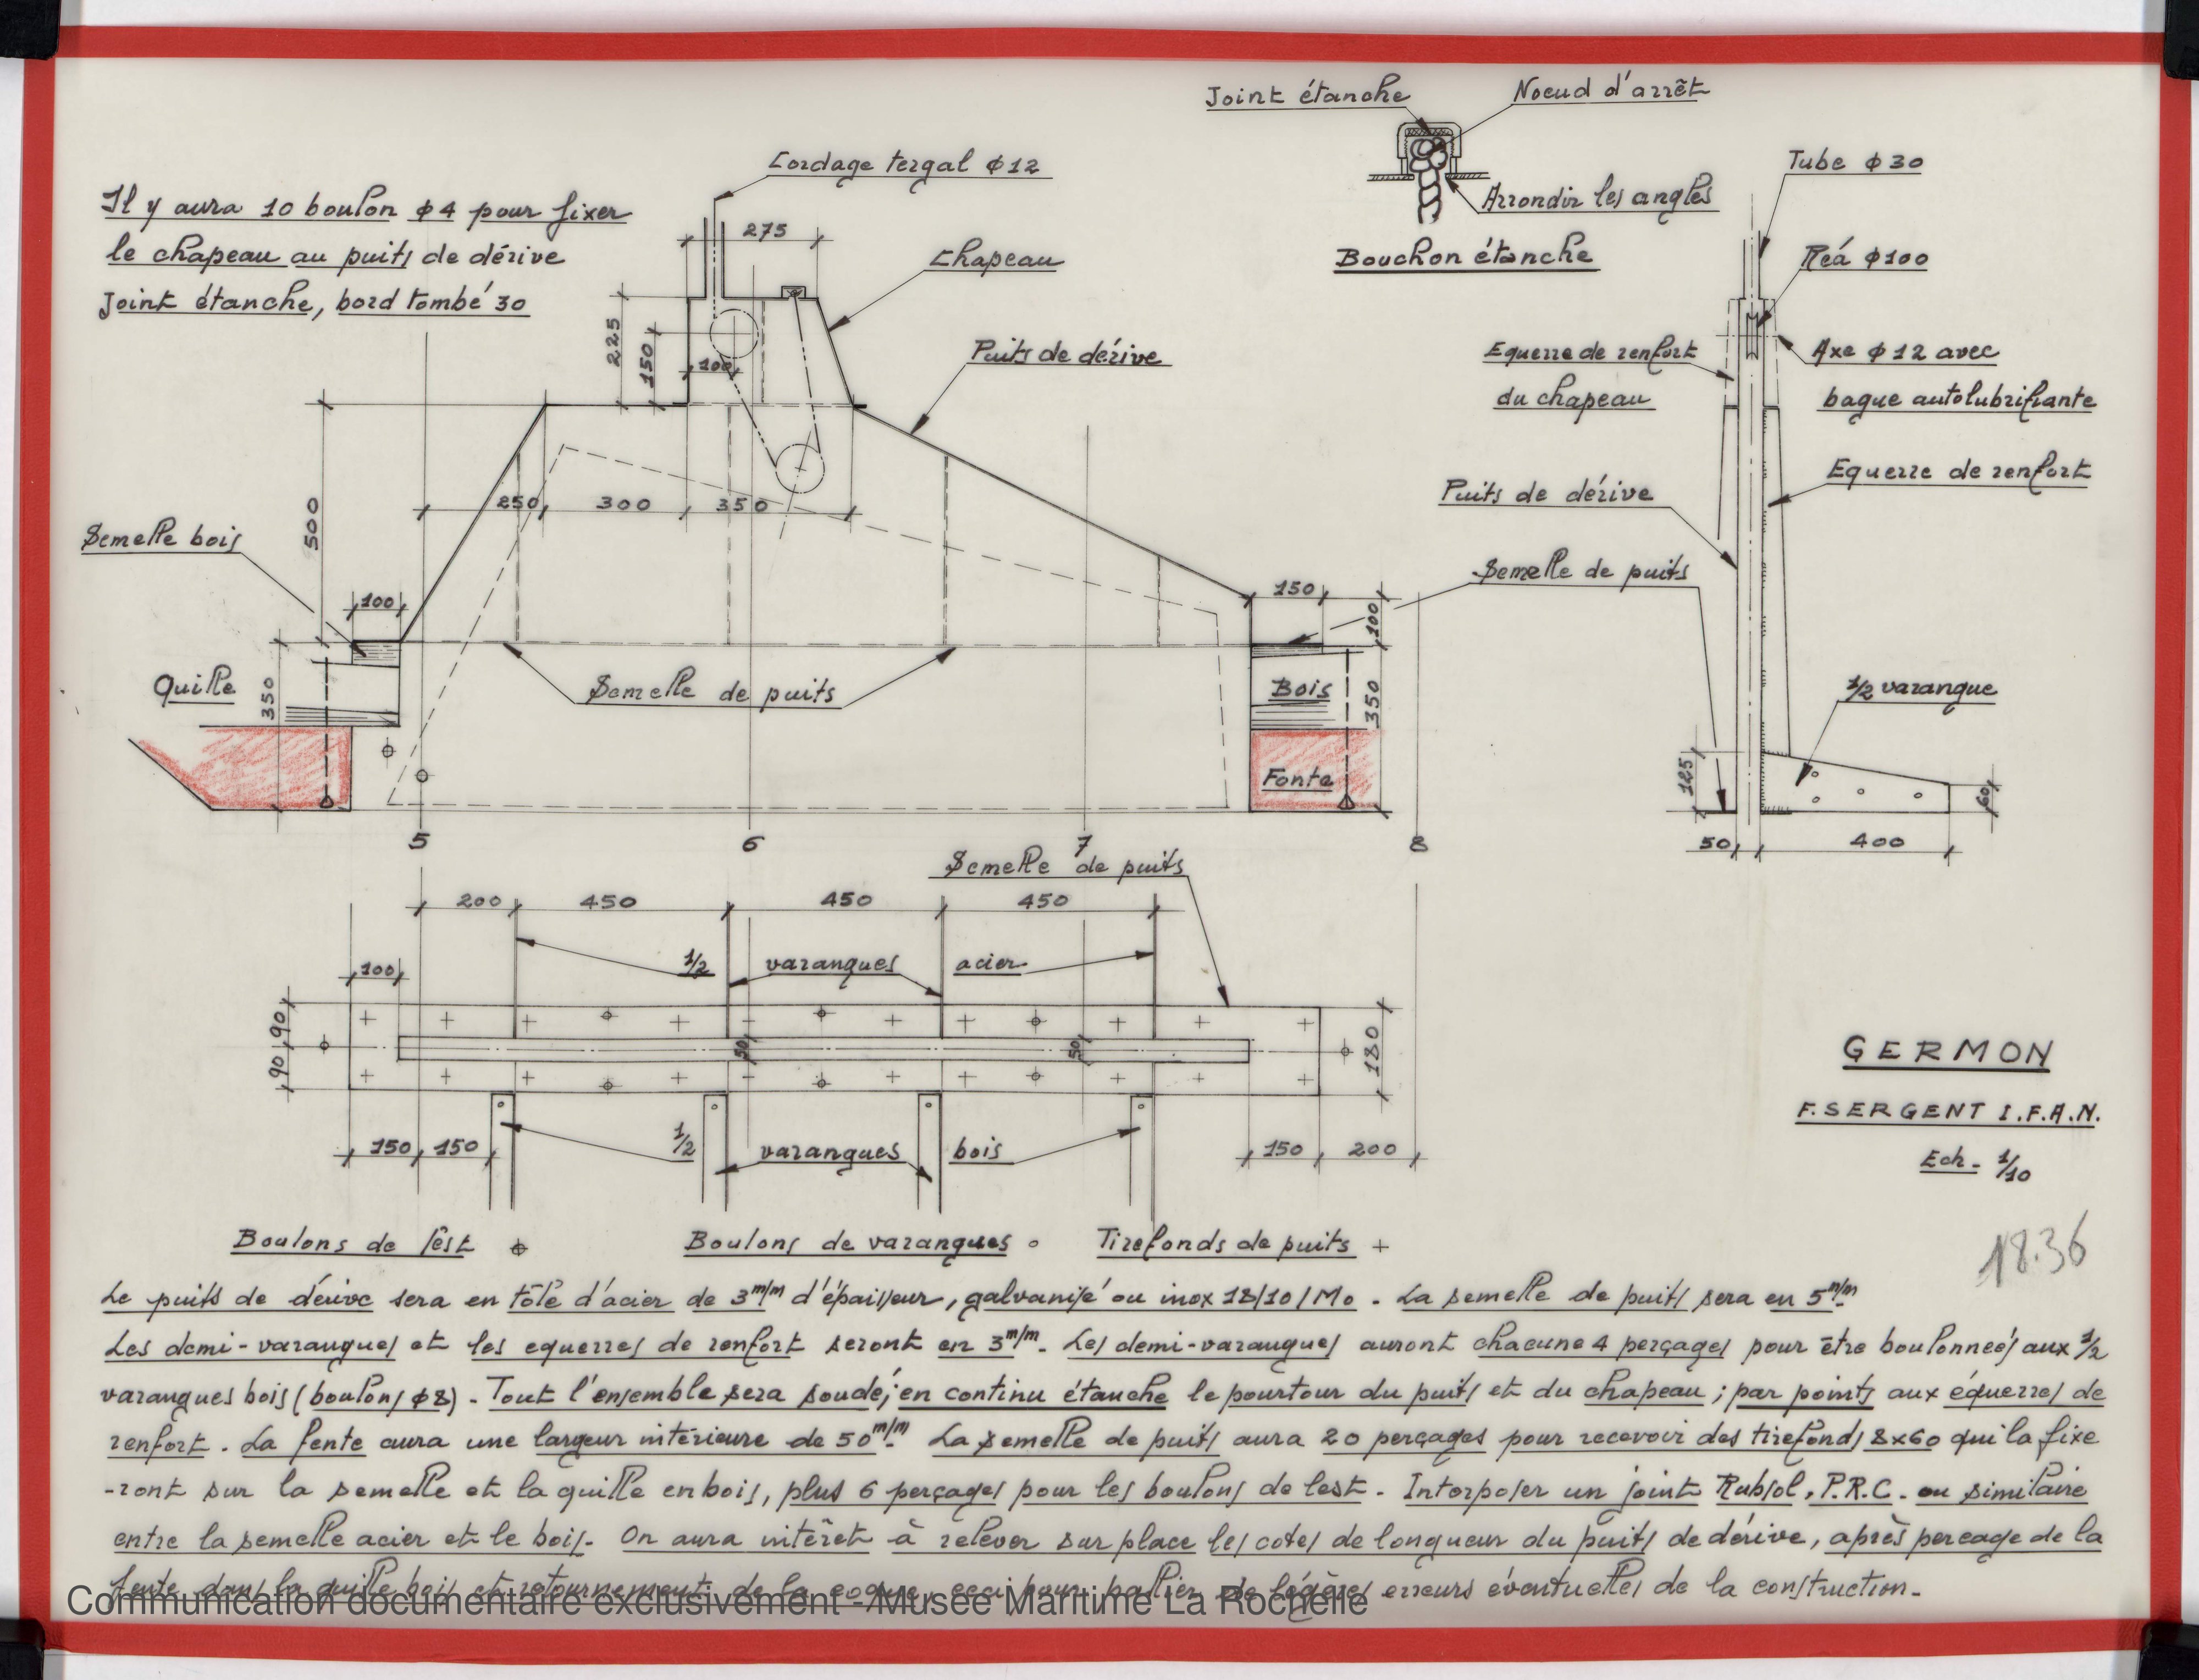 Joint étanche
Noeud d'arrêt
Arrondir les angles
Bouchon étanche
Cordage tergal ф12
Il y aura 10 boulon ф4 pour fixer
le chapeau au puits de dérive
Joint étanche, bord tombé 30
275
Chapeau
225
150
100
Puits de dérive
500
250
300
350
Semelle bois
100
Quille
350
Semelle de puits
150
100
Bois
350
Fonte
5
6
7
8
Tube ф30
Réá ф100
Equerre de renfort
du chapeau
Axe ф12 avec
bague autolubrifiante
Equerre de renfort
Puits de dérive
Semelle de puits
1/2 varangue
125
60
50
400
Semelle de puits
200
450
450
450
1/2 varangues acier
100
90
90
50
50
180
1/2 varangues bois
150
150
150
200
GERMON
F. SERGENT I.F.A.N.
Ech. 1/10
18.36
Boulons de lest
Boulons de varangues
Tirefonds de puits +
Le puits de dérive sera en tôle d'acier de 3 m/m d'épaisseur, galvanisé ou inox 18/10/Mo. La semelle de puits sera en 5 m/m
Les demi-varangues et les equerres de renfort seront en 3 m/m. Les demi-varangues auront chacune 4 perçages pour être boulonneés aux 1/2
varangues bois (boulons ф8). Tout l'ensemble sera soudé; en continu étanche le pourtour du puits et du chapeau; par points aux équerres de
renfort. La fente aura une largeur intérieure de 50 m/m. La semelle de puits aura 20 perçages pour recevoir des tirefonds 8x60 qui la fixe
-ront sur la semelle et la quille en bois, plus 6 perçages pour les boulons de lest. Interposer un joint Rubsol, P.R.C. ou similaire
entre la semelle acier et le bois. On aura intêret à relever sur place les cotes de longueur du puits de dérive, après percage de la
fente dans la quille bois et retournement de la coque, ceci pour pallier de légères erreurs éventuelles de la construction.
Communication documentaire exclusivement - Musée Maritime La Rochelle